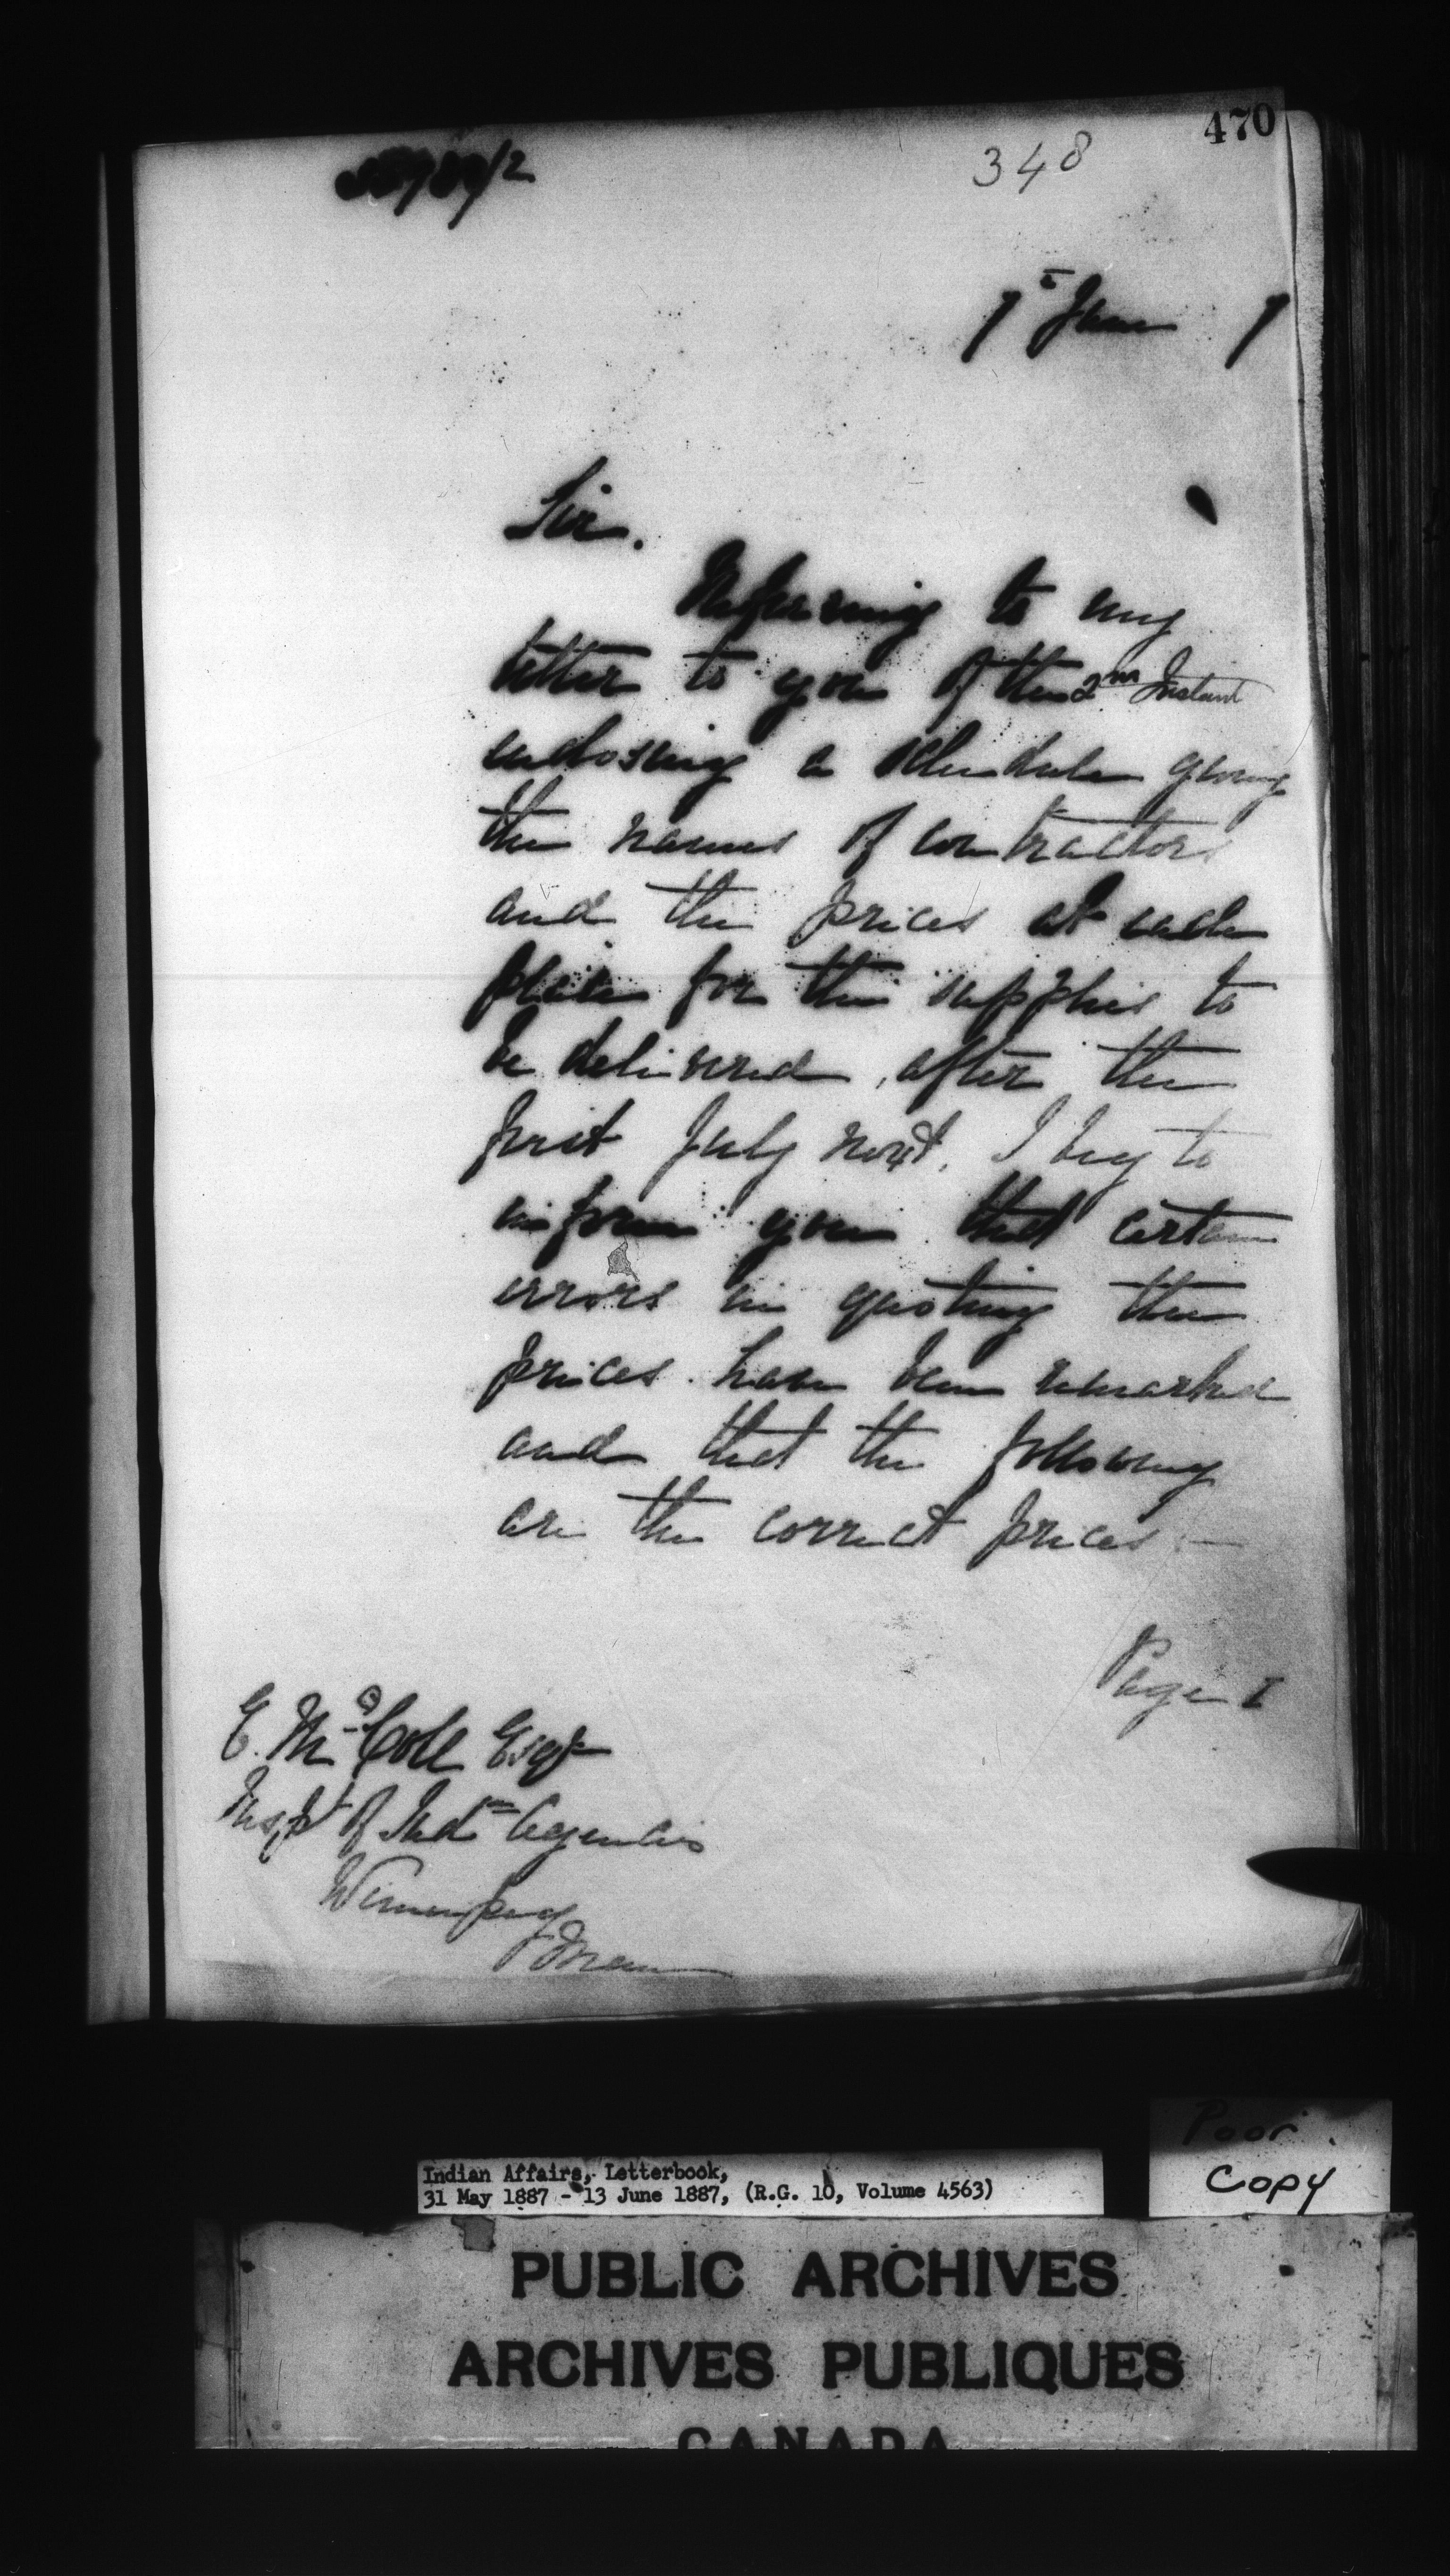 470
348
7th June 7
Sir.
Referring to my
letter to you of the 2nd Instant
enclosing a Schedule giving
the names of contractors
and the prices at each
place for the supplies to
be delivered, after the
first July next, I beg to
inform you that certain
errors in quoting the
prices have been remarked
and that the following
are the correct prices —
Page I
E. McColl Esqr
Inspt of Indn Agencies
Winnipeg
Man
Poor
Copy
Indian Affairs, Letterbook,
31 May 1887 - 13 June 1887, (R.G. 10, Volume 4563)
PUBLIC ARCHIVES
ARCHIVES PUBLIQUES
CANADA